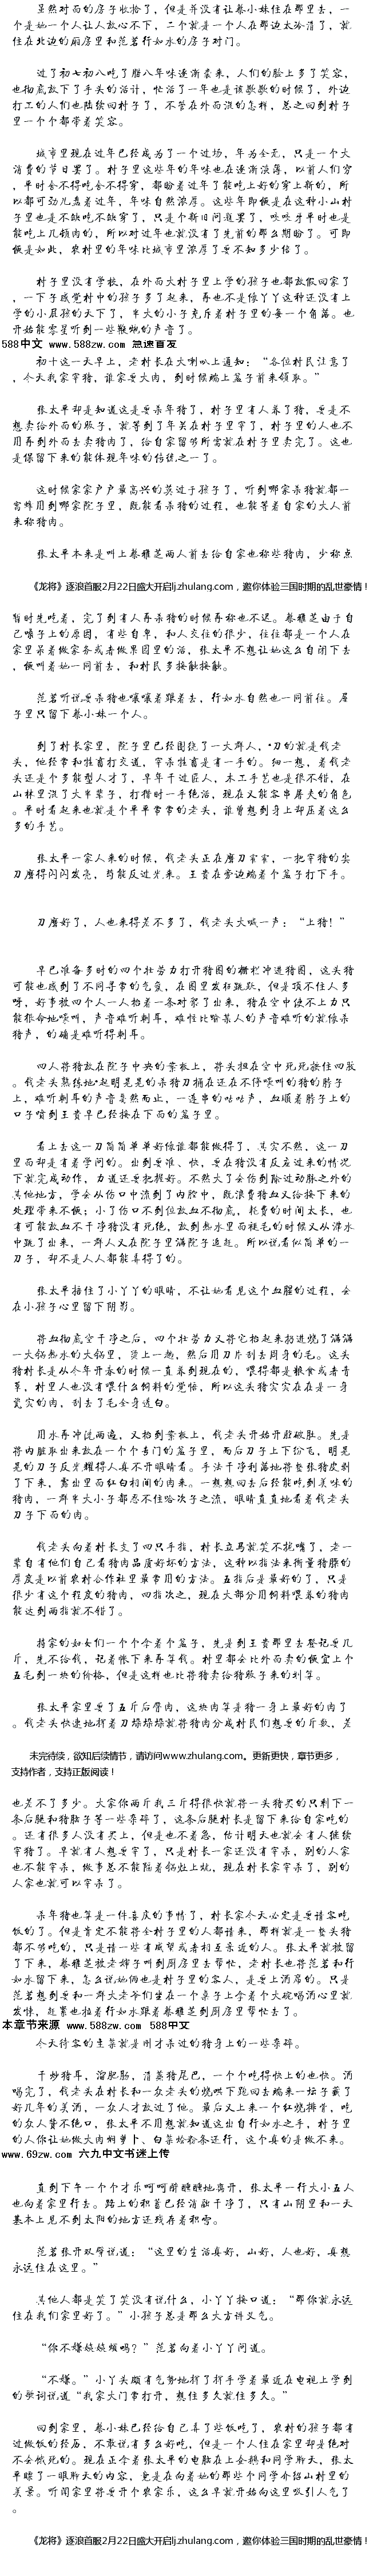 虽然对面的房子收拾了，但是并没有让蔡小妹住在那里去，一
个是她一个人让人放心不下，二个就是一个人在那边太冷清了，就
住在北边的厢房里和范茗行如水的房子对门。
过了初七初八吃了腊八年味逐渐袭来，人们的脸上多了笑容，
也彻底放下了手头的活计，忙活了一年也是该歇歇的时候了，外边
打工的人们也陆续回村子了，不管在外面混的怎样，总之回到村子
里一个个都带着笑容。
城市里现在过年已经成为了一个过场，年为全无，只是一个大
消费的节日罢了。村子里这些年的年味也在逐渐淡薄，以前人们穷
，平时舍不得吃舍不得穿，都盼着过年了能吃上好的穿上新的，所
以都可劲儿盡着过年，年味自然浓厚。这些年即便是在这种小山村
子里也是不缺吃不缺穿了，只是个新旧问道罢了，呋呋牙平时也是
能吃上几顿肉的，所以对过年也就没有了先前的那么期盼了。可即
便是如此，农村里的年味比城市里浓厚了要不知多少倍了。
村子里没有学校，在外面大村子里上学的孩子也都放假回家了
，一下子感觉村中的孩子多了起来，再也不是像丫丫这种还没有上
学的小屁孩的天下了，半大的小子充斥着村子里的每一个角落。也
开始能零星听到一些鞭炮的声音了。
588中文 www.588zw.com 急速首发
初十这一天早上，老村长在大喇叭上通知：“各位村民注意了
，今天我家宰猪，谁家要大肉，到时候端上盆子前来领取。”
张太平却是知道这是要杀年猪了，村子里有人养了猪，要是不
想卖给外面的贩子，就等到了年关在村子里宰了，村子里的人也不
用再到外面去卖猪肉了，给自家留够所需就在村子里卖完了。这也
是保留下来的能体现年味的传统之一了。
这时候家家户户最高兴的莫过于孩子了，听到哪家杀猪就都一
窝蜂用到哪家院子里，既能看杀猪的过程，也能等着自家的大人前
来称猪肉。
张太平本来是叫上蔡雅芝两人前去给自家也称些猪肉，少称点
《龙将》逐浪首服2月22日盛大开启lj.zhulang.com，邀你体验三国时期的乱世豪情！
暂时先吃着，完了到有人再杀猪的时候再称也不迟。蔡雅芝由于自
己嗓子上的原因，有些自卑，和人交往的很少，往往都是一个人在
家里呆着做家务或者做果园里的活，张太平不想让她这么自闭下去
，便叫着她一同前去，和村民多接触接触。
范茗听说要杀猪也嚷嚷着跟着去，行如水自然也一同前往。屋
子里只留下蔡小妹一个人。
到了村长家里，院子里已经围绕了一大群人，·刀的就是钱老
头，他经常和牲畜打交道，宰杀牲畜是有一手的。细一想，看钱老
头还是个多能型人才了，早年干过匠人，木工手艺也是很不错，在
山林里混了大半辈子，打猎时一手绝活，现在又能客串屠夫的角色
。平时看起来也就是个平平常常的老头，谁曾想到身上却压着这么
多的手艺。
张太平一家人来的时候，钱老头正在磨刀霍霍，一把宰猪的尖
刀磨得闪闪发亮，都能反过光来。王贵在旁边端着个盆子打下手。
刀磨好了，人也来得差不多了，钱老头大喊一声：“上猪！”
早已准备多时的四个壮劳力打开猪圈的栅栏冲进猪圈，这头猪
可能也感到了不同寻常的气氛，在圈里发狂跳跃，但是顶不住人多
呀，好事被四个人一人拾着一条对象了出来，猪在空中使不上力只
能拼命地嚎叫，声音难听刺耳，难怪比喻某人的声音难听的就像杀
猪声，的确是难听得刺耳。
四人将猪放在院子中央的案板上，将头担在空中死死按住四肢
。钱老头熟练地·起明晃晃的杀猪刀捅在还在不停嚎叫的猪的脖子
上，难听刺耳的声音戛然而止，一连串的咕咕声，血顺着脖子上的
口子喷到王贵早已经接在下面的盆子里。
看上去这一刀简简单单好像谁都能做得了，其实不然，这一刀
里面却是有着学问的。出到要准、快，要在猪没有反应过来的情况
下就完成动作，力道还要把握好。不然大了会伤到除过动脉之外的
其他地方，学会从伤口中流到了内脏中，既浪费猪血又给接下来的
处理带来不便；小了伤口不到位放血不彻底，耗费的时间太长，也
有可能放血不干净猪没有死绝，放到热水里面褪毛的时候又从滞水
中跳了出来，一群人又在院子里满院子追起。所以说看似简单的一
刀子，却不是人人都能弄得了的。
张太平捂住了小丫丫的眼睛，不让她看见这个血腥的过程，会
在小孩子心里留下阴影。
将血彻底空干净之后，四个壮劳力又将它抬起来扔进烧了满满
一大锅热水的大锅里，烫上一趟，然后用刀片刮去周身的毛。这头
猪村长是从今年开春的时候一直养到现在的，喂得都是粮食或者青
草，村里人也没有喂什么饲料的觉悟，所以这头猪实实在在是一身
瓷实的肉，刮去了毛全身透白。
用水再冲洗两遍，又拾到案板上，钱老头开始开膛破肚。先是
将内脏取出来放在一个个专门的盆子里，而后刀子上下纷飞，明晃
晃的刀子反光耀得人真不开眼睛看。手法干净利落地将整张猪皮剥
了下来，露出里面红白相间的肉来。一想想回去后轻能吃到美味的
猪肉，一群半大小子都忍不住咯次子之流，眼睛直直地看着钱老头
刀子下面的肉。
钱老头向着村长支了四只手指，村长立马就笑不拢嘴了，老一
辈自有他们自己看猪肉品质好坏的方法，这种以指法来衡量猪膘的
厚度是以前农村合作社里最常用的方法。五指后是最好的了，只是
很少有这个程度的猪肉，四指次之，现在大部分用饲料喂养的猪肉
能达到两指就不错了。
持家的妇女们一个个拿着个盆子，先是到王贵那里去登记要几
斤，先不给钱，记着帐下来再算钱。村里都会比外面卖的便宜上个
五毛到一块的价格，但是这样也比将猪卖给猪贩子来的划算。
张太平家里要了五斤后臀肉，这块肉算是猪一身上最好的肉了
。钱老头快速地挥着刀噼噼噼就将猪肉分成村民们想要的斤数，差
未完待续，欲知后续情节，请访问www.zhulang.com。更新更快，章节更多，
支持作者，支持正版阅读！
也差不了多少。大家你两斤我三斤得很快就将一头猪买的只剩下一
条后腿和猪肚子等一些杂碎了，这条后腿村长是留下来给自家吃的
。还有很多人没有买上，但是也不着急，估计明天也就会有人继续
宰猪了。早就有人想要宰了，只是村长一家还没有宰杀，别的人家
也不能宰杀，做事总不能陌看锅灶上炕，现在村长家宰杀了，别的
人家也就可以宰杀了。
杀年猪也算是一件喜庆的事情了，村长家今天必定是要请客吃
饭的了。但是肯定不能将全村子里的人都请来，那样就是一整头猪
都不够吃的，只是请一些有威望或者相互亲近的人。张太平就被留
了下来，蔡雅芝被老婶子叫到厨房里去帮忙，老村长也将范茗和行
如水留下来，怎么说她俩也是村子里的客人，是要上酒席的。只是
范茗想到要和一群大老爷们坐在一个桌子上拿着个大碗喝酒心里就
发怵，赶紧也拉着行如水跟着蔡雅芝到厨房里帮忙去了。
本章节来源 www.588zw.com 588中文
今天待客的主菜就是刚才杀过的猪身上的一些杂碎。
干炒猪耳，溜肥肠，清蒸猪尾巴，一个个吃得快上的也快。酒
喝完了，钱老头在村长和一众老头的烧哄下跑回去端来一坛子藏了
好几年的美酒，一众人才放过了他。最后又上来一个红烧排骨，吃
的众人赞不绝口，张太平不用想就知道这出自行如水之手，村子里
的人你让她做大肉焖萝卜、白菜烩粉条还行，这个真的是做不来。
www.69zw.com 六九中文书迷上传
直到下午一个个才乐呵呵醉醺醺地离开，张太平一行大小五人
也向着家里行去。路上的积雪已经消融干净了，只有山阴里和一天
基本上见不到太阳的地方还残存着积雪。
范茗张开双臂说道：“这里的生活真好，山好，人也好，真想
永远住在这里。”
其他人都是笑了笑没有说什么，小丫丫接口道：“那你就永远
住在我们家里好了。”小孩子总是那么大方讲义气。
“你不嫌姨姨烦吗？”范茗向着小丫丫问道。
“不嫌。”小丫头颇有气势地挥了挥手学着最近在电视上学到
的歌词说道“我家大门常打开，想住多久就住多久。”
回到家里，蔡小妹已经给自己弄了些饭吃了，农村的孩子都有
过做饭的经历，不敢说有多么好吃，但是一个人住在家里却是绝对
不会饿死的。现在正拿着张太平的电脑在上企鹅和同学聊天，张太
平瞟了一眼聊天的内容，竟是在向着她的那些个同学介绍山村里的
美景。听闻家里将要开个农家乐，这么早就开始向这里吸引人气了
。
《龙将》逐浪首服2月22日盛大开启lj.zhulang.com，邀你体验三国时期的乱世豪情！